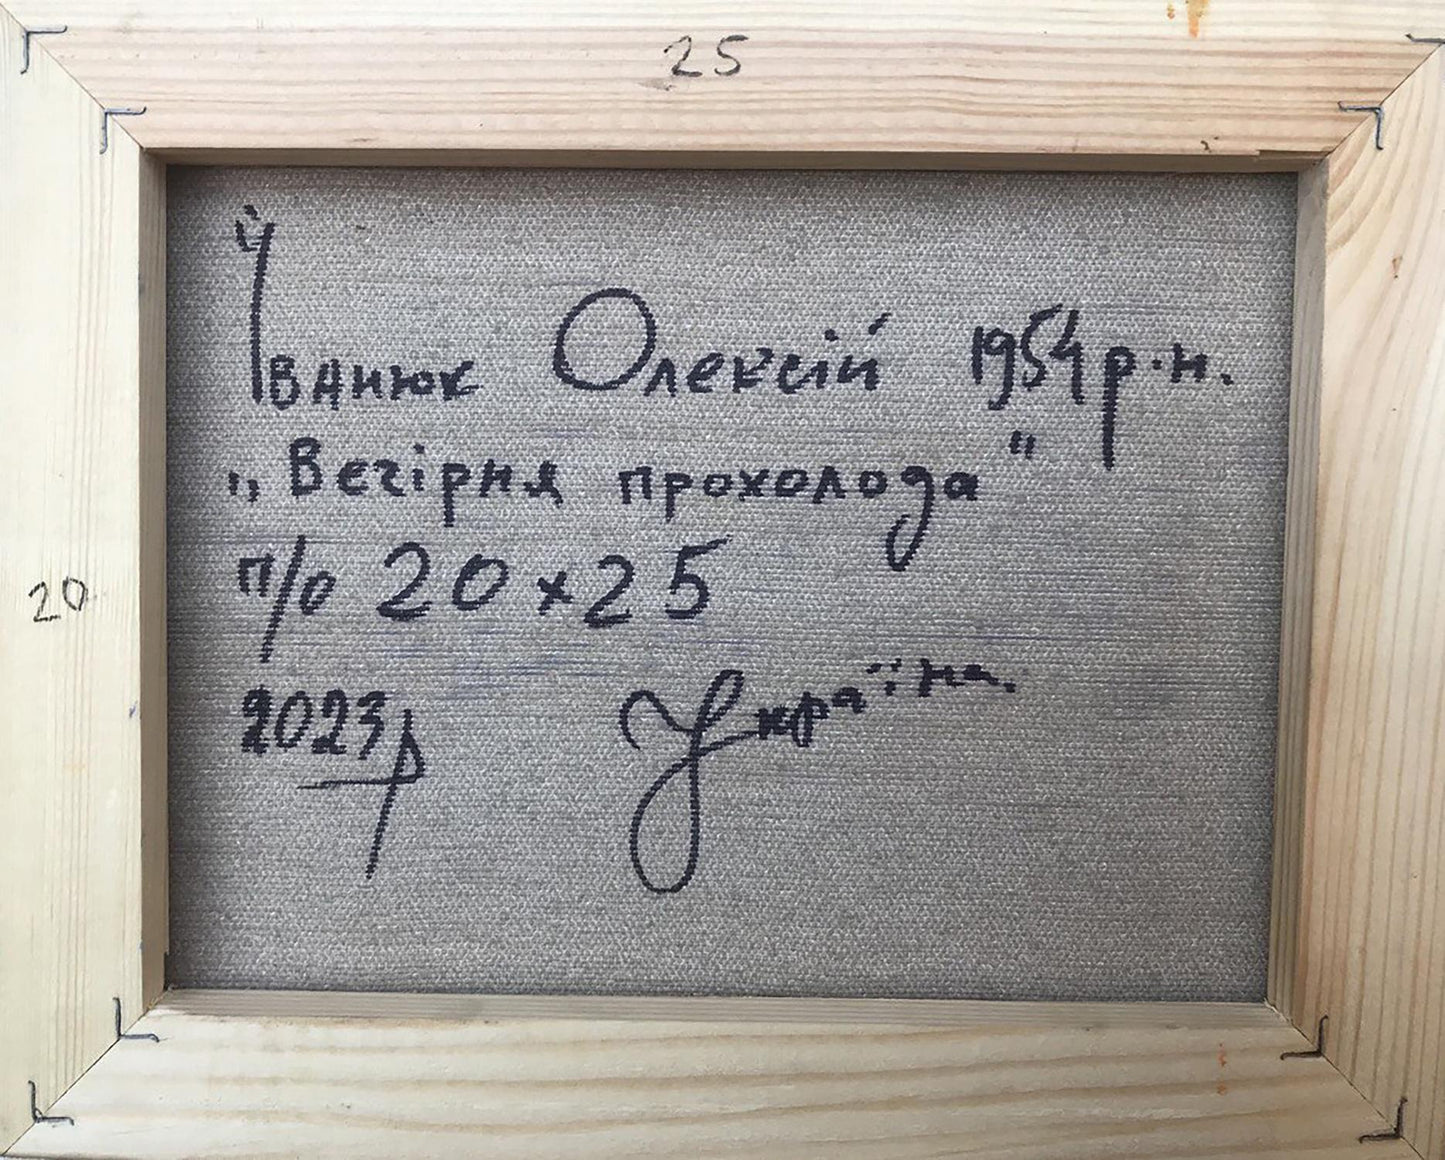 25
Іванюк Олексій 1954 р.н.
„Вечірня прохолода"
20
п/о 20×25
2023р Україна.